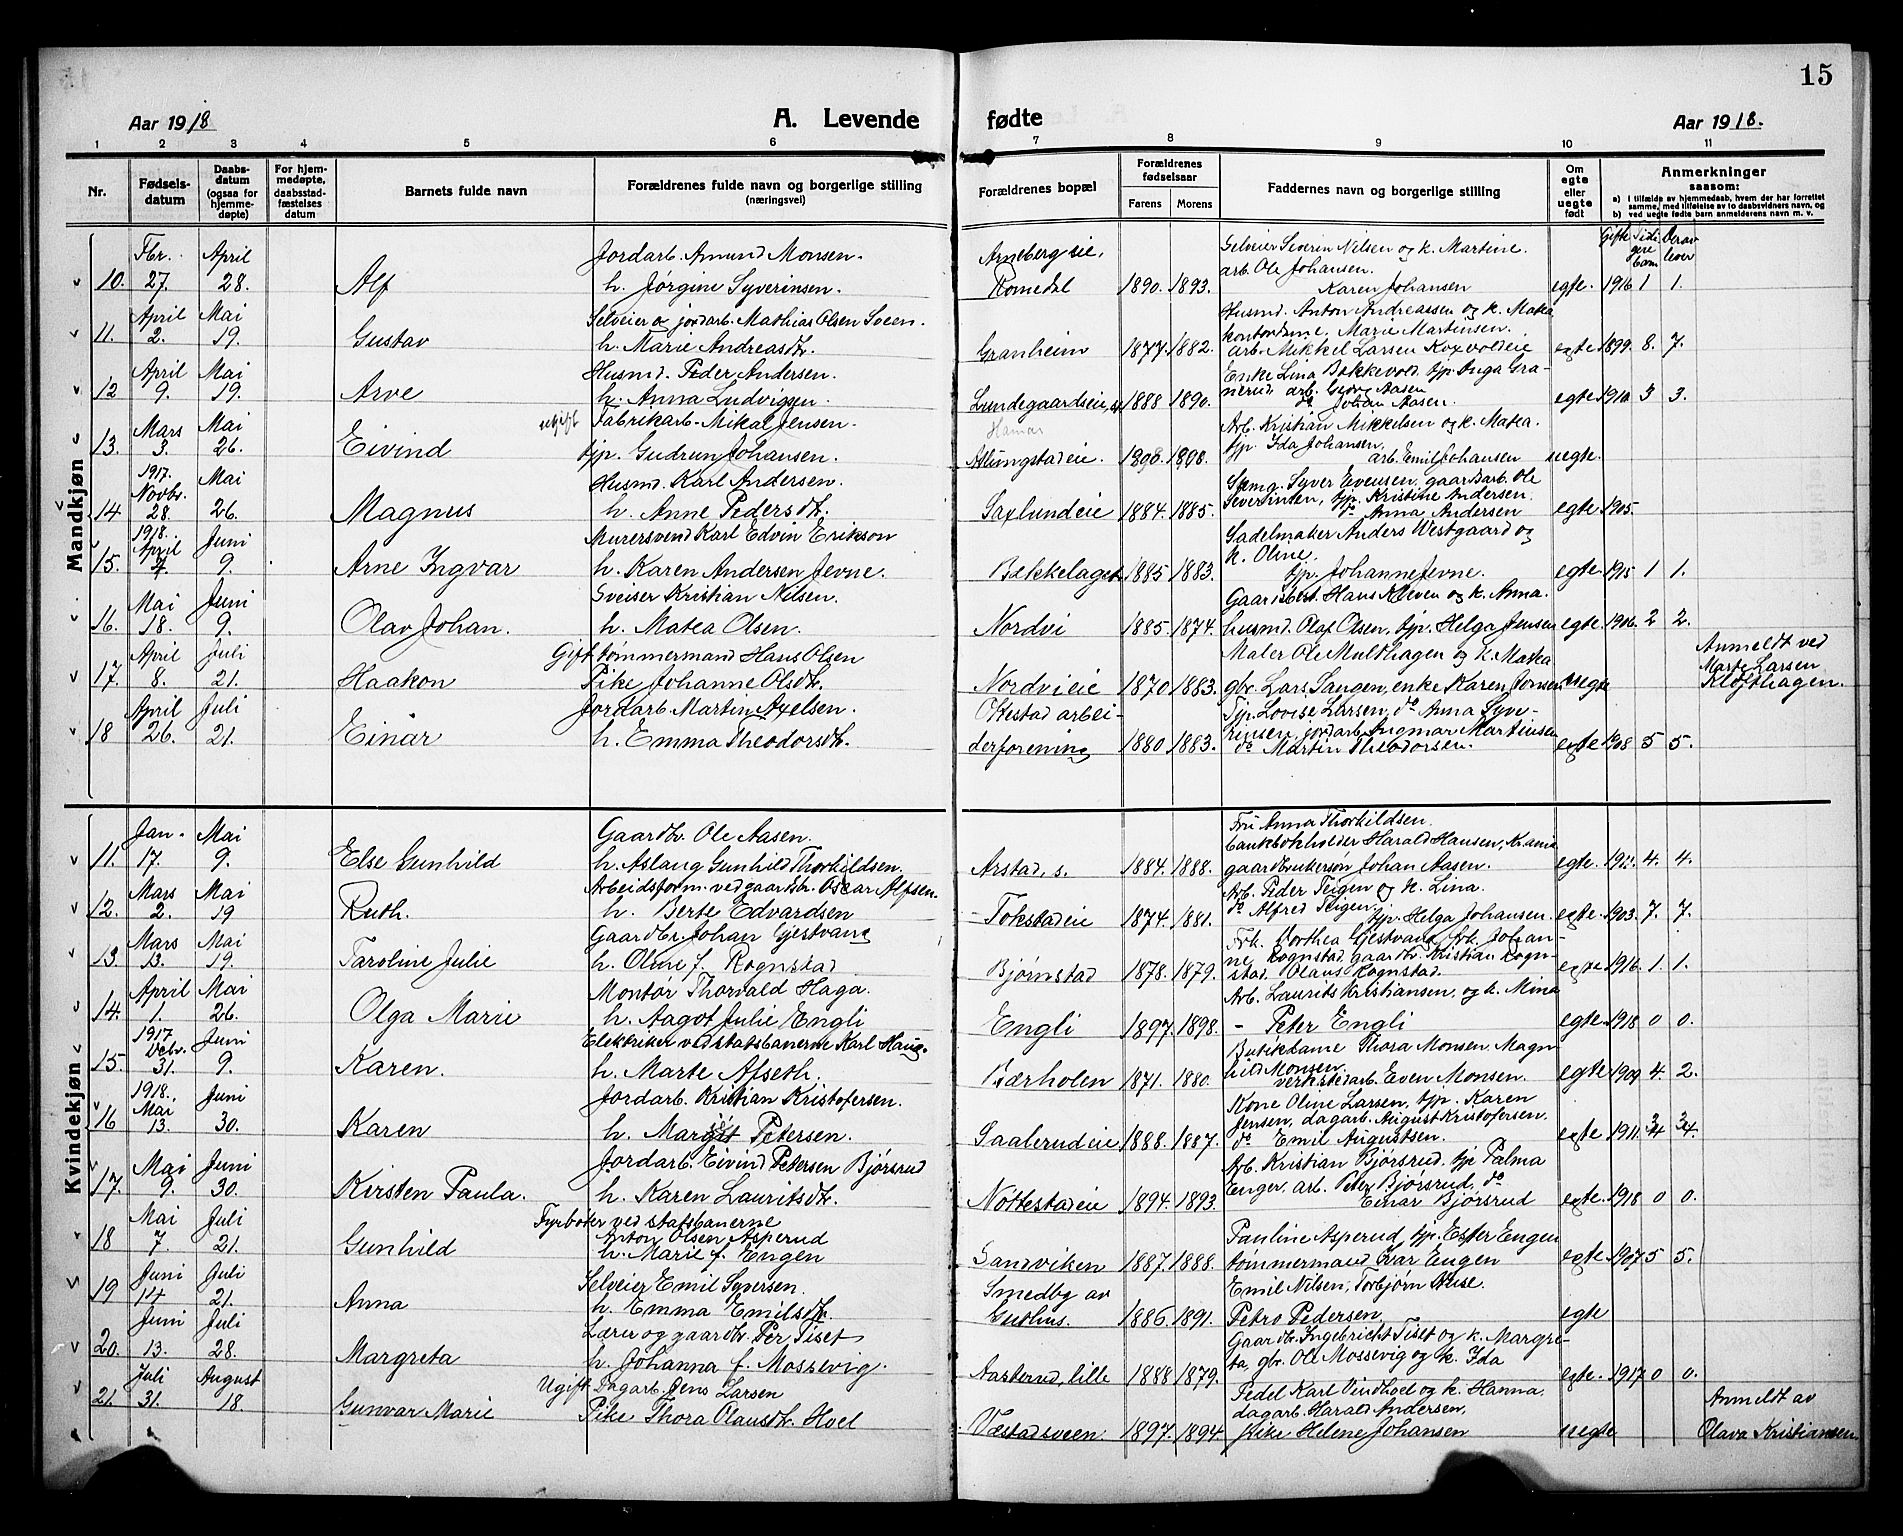 15
Aar 1918
A. Levende
fødte
Aar 1918.
1 2 3 4 5 6 7 8 9 10 11
Nr.
Fødsels-
datum
Daabs-
datum
(ogsaa for
hjemme-
døpte)
For hjem-
medøpte,
daabsstad-
fæstelses
datum
Barnets fulde navn
Forældrenes fulde navn og borgerlige stilling
(næringsvei)
Forældrenes bopæl
Forældrenes
fødselsaar
Farens. Morens.
Faddernes navn og borgerlige stilling
Om
egte
eller
uegte
født
Anmerkninger
saasom:
a) i tilfælde av hjemmedaab, hvem der har forrettet
samme, med tilføielse av to daabsvidners navn, og
b) ved uegte fødte barn anmelderens navn m. v.
Gifte Tidligere barn Derav lever
Mandkjøn
Fbr. April Jordarb. Amund Monsen. Arneberg eie, Selveier Severin Nilsen og k. Martine.
arb. Ole Johansen.
10. 27. 28. Alf h. Jørgine Syverinsen. Romedal 1890. 1893. Karen Johansen egte. 1916 1 1.
April Mai Selveier og jordarb. Mathias Olsen Sveen. Husmd. Anton Andreassen og k. Matea
kontordame, Marie Martinsen.
11. 2. 19. Gustav h. Marie Andreasdtr. Granheim 1877. 1882. arb. Mikkel Larsen egte 1899. 8. 7.
April Mai Husmd. Peder Andersen. Enke Lina Bekkevold, tjp. Inga Gra-
nerud, arb. Georg Aasen
12 9. 19. Arve h. Anna Ludvigsen Lundegaardseie, 1888 1890. do Johan Aasen. egte 1910 3 3.
Mars Mai ugift Fabrikarb. Mikal Jensen. Hamar Arb. Kristian Mikkelsen og k. Matea.
tjp. Ida Johansen,
13. 3. 26. Eivind tjp. Gudrun Johansen. 1898. arb. Emil Johansen uegte.
1917. Novbr. Mai Husmd. Karl Andersen. Syver Evensen, gaardarb. Ole
Severinsen, tjp. Kristine Andersen.
14 28. 26. Magnus h. Anne Pedersdtr. Saxlundeie 1884. 1885. do Anna Andersen egte 1905.
1918. April Juni Murersvend Karl Edvin Erikson Sadelmaker Anders Westgaard og
k. Oline.
15. 9. Arne Ingvar h. Karen Andersen Jevne. Bækkelaget 1885 1883. tjp. Johanne Jevne. egte. 1915 1 1.
Mai Juni Sveiser Kristian Nilsen. Hans Kleven og k. Anna.
16. 18. 9. Olav Johan. h. Matea Olsen. Nordvi 1885 1874. husmd. Olaf Olsen, tjp. Helga Jensen egte 1906. 2 2.
April Juli Gift tømmermand Hans Olsen Maler Ole Multhagen og k. Marka Anmeldt ved
Marte Larsen
17. 8. 21. Haakon Pike Johanne Olsdtr. Nordvieie 1870 1883. gbr. Lars Sangen, enke Karen Jonsen uegte Kløfthagen.
April Juli Jordarb. Martin Axelsen. Okestad arbei- Tjp. Lovise Larsen, do Anna Syve-
rensen, jordarb. Ingmar Martinsen
18 26. 21. Einar h. Emma Theodorsdtr. derforening 1880 1883. do Martin Theodorsen. egte 1908 5 5.
Kvindekjøn
Jan. Mai Gaardbr. Ole Aasen. Fru Anna Thorkildsen.
bankbokholder Harald Hansen,
11. 17. 9. Else Gunhild h. Aslaug Gunhild Thorkildsen. Arstad, s. 1884. 1888. gaardbrukersøn Johan Aasen. egte. 4. 4.
Mars Mai Arbeidsform. ved gaardsbr. Oscar Alfsen Arb. Peder Teigen og k. Lina.
do Alfred Teigen.
12. 2. 19 Ruth. h. Berte Edvardsen Tokstadeie 1874. 1881. tjp. Helga Johansen. egte. 1903. 7. 7.
Mars Mai Gaardbr. Johan Gjestvang Frk. Dorthea Gjestvang, frk. Johan-
ne Rognstad, gaardbr. Kristian Rogn-
13. 13. 19. Taroline Julie h. Oline f. Rognstad Bjørnstad 1878. 1879. stad, Olaus Rognstad. egte 1916. 1. 1.
April Mai Montør Thorvald Haga. Arb. Laurits Kristiansen, og k. Mina
14. 1. 26. Olga Marie h. Aagot Julie Engli Engli 1897. 1898. - Peter Engli egte. 1918 0 0.
1917 Debr. Juni Elektriker ved statsbanerne Karl Haug. Butikdame Thora Monsen, Magn-
hild Monsen.
15. 31. 9. Karen. h. Marte Afseth. Bærholen 1871. 1880. verkstedarb. Even Monsen. egte 1909 4. 2.
1918. Mai Juni Jordarb. Kristian Kristofersen. Kone Oline Larsen, tjp. Karen
Jensen, dagarb. August Kristofersen.
16 13. 30. Karen h. Margit Petersen. Saalerudeie 1888. 1887. do Emil Augustsen. egte. 1911. 4 4.
Mai Juni Jordarb. Eivind Petersen Bjørsrud Arb. Kristian Bjørsrud, tjp Palma
Enger, arb. Peter Bjørsrud, do
17. 9. 30. Kirsten Paula. h. Karen Lauritsdtr. Nottestadeie 1894. 1893. Einar Bjørsrud egte. 1918 0 0.
Mai Juli Fyrbøter ved statsbanerne
Anton Olsen Asperud Pauline Asperud, tjp. Ester Engen
18 7. 21. Gunhild h. Marie f. Engen Sandviken 1887. 1888. tømmermand Ivar Engen egte 1907 5 5.
Juni Juli Selveier Emil Syversen. Smedby av Emil Nilsen, Torbjørn Huse.
19 14 21. Anna h. Emma Emilsdtr. 1886. 1891. Petro Pedersen. egte
Juni Juli Lærer og gaardbr. Per Tiset Gaardbr. Ingebricht Tiset og k. Margre-
20. 13. 28. Margreta h. Johanna f. Mossevig. Aasterud, lille 1888 1879. ta, gbr. Ole Mossevig og k. Ida egte. 1917 0 0.
Juli August Ugift Dagarb. Jens Larsen Pedel Karl Vindhoel og k. Hanna. Anmeldt av
dagarb. Harald Andersen.
21. 31. 18. Gunvar Marie Pike Thora Olausdtr. Hoel Væstadsveen 1897. 1894. Pike Helene Johansen uegte Olava Kristiansen.